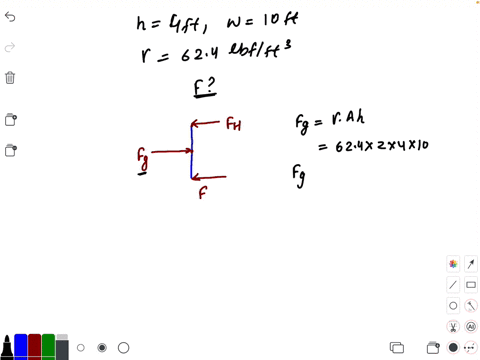 h = 4ft, w = 10ft
r = 62.4 lbf/ft³
F?
FH
Fg
F
Fg = r.Ah
= 62.4×2×4×10
Fg